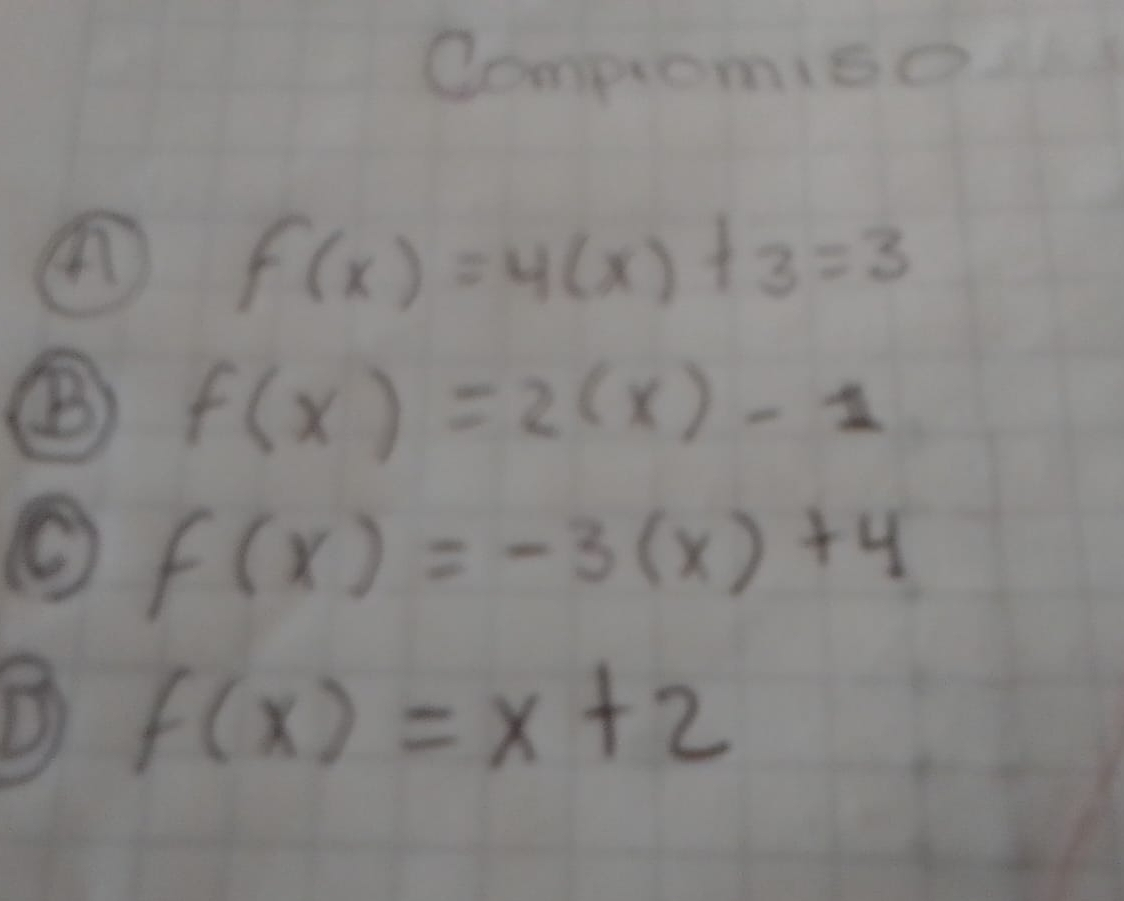 Compromiso
A f(x) = 4(x) + 3 = 3
B f(x) = 2(x) - 1
C f(x) = -3(x) + 4
D f(x) = x + 2